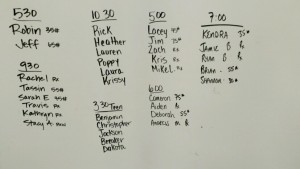 530
Robin 35#
Jeff 65#
930
Rachel Rx
Tassin 55#
Sarah E 35#
Travis Rx
Kathryn Rx
Stacy A
10 30
Rick
Heather
Lauren
Poppy
Laura
Krissy
3,30 Teen
Benjamin
Christopher
Jackson
Brooker
Dakota
5:00
Lacey
Jim
Zach
Kris Rx
Mikel Rx
6:00
Cameron 75#
Aiden
Deborah 35#
7:00
Kendra 35#
Jamie B Rx
Ryan B Rx
Brian 55#
Shannon